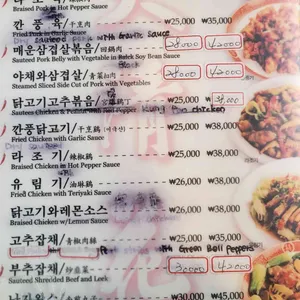 라조육/辣椒肉 ₩25,000 ₩35,000
Braised Pork in Hot Pepper Sauce
깐풍육/干烹肉 ₩25,000 ₩35,000
Fried Pork in Garlic Sauce
매운삼겹살볶음/回鍋肉 28,000 42,000
Sauteed Pork Belly with Vegetable in Batck Soy Bean Sauce
야채와삼겹살/青菜扣肉 28,000 42,000
Steamed Sliced Side Cut of Pork with Vegetables
닭고기고추볶음/宮爆鷄丁 ₩25,000 ₩38,000
Kung Pao chicken
깐풍닭고기/干烹鷄 ₩25,000 ₩38,000
Fried Chicken with Garlic Sauce
라조기/辣椒鷄 ₩25,000 ₩38,000
Braised Chicken in Hot Pepper Sauce
유림기/油淋鷄 ₩26,000 ₩38,000
Fried Chicken with Teriyaki Sauce
닭고기와레몬소스 ₩26,000 ₩38,000
Sauteed Chicken with Lemon Sauce
고추잡채/青椒肉絲 ₩25,000 ₩35,000
Green Bell Peppers
부추잡채/炒韮菜 30000 42000
Sauteed Shredded Beef and Leek
₩30,000 ₩45,000